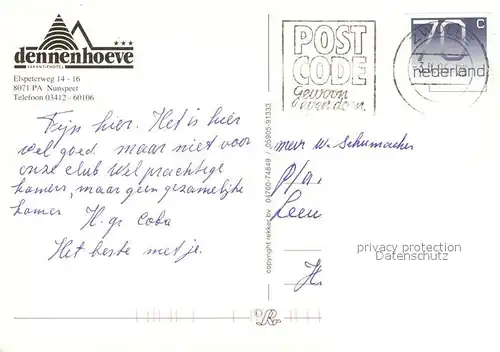 dennenhoeve
VAKANTIEHOTEL
Elspeterweg 14 - 16
8071 PA Nunspeet
Telefoon 03412 - 60106
Fijn hier. Het is hier
wel goed. maar niet voor
onze club Wel prachtige
kamers, maar geen gezamelijke
kamer H. gr Coba
Het beste met je.
copyright rekker bv 04760-74848 / 05905-91333
POST
CODE
gewoon
even doen.
ZWOLLE
70 c
nederland
meur W. Schumacher
P/a,
Leeu
H
privacy protection
Datenschutz